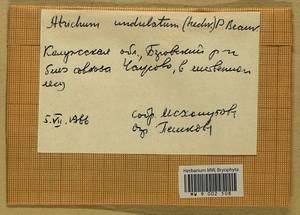 Atrichum undulatum (Hedw.) P. Beauv
Калужская обл., Боровский р-н
близ совхоза Чаусово, в лиственном
лесу
5.VII.1986 собр. Исхакутов
опр. Пешкова
Herbarium MW, Bryophyta
MW 9 002 508